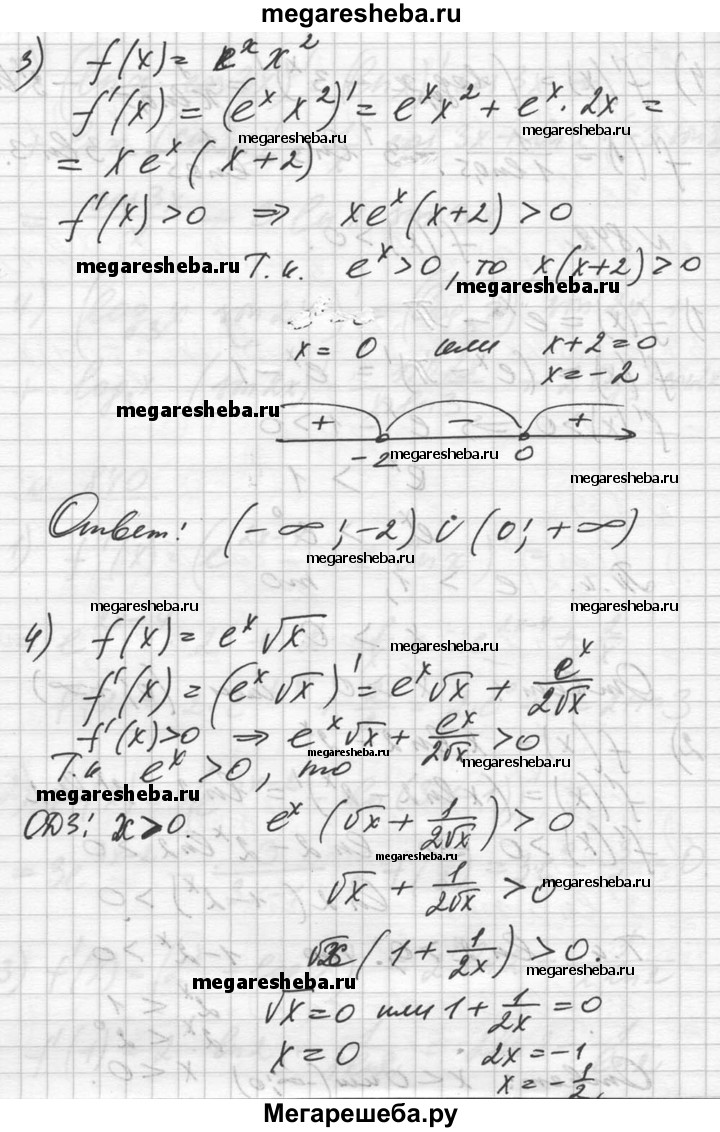 megaresheba.ru
3) f(x) = e^x x^2
f'(x) = (e^x x^2)' = e^x x^2 + e^x · 2x =
megaresheba.ru megaresheba.ru
= x e^x (x+2)
f'(x) > 0 ⇒ x e^x (x+2) > 0
megaresheba.ru Т.к. e^x > 0, то x(x+2) > 0
megaresheba.ru
x = 0 или x+2=0
x = -2
megaresheba.ru + − +
-2 megaresheba.ru 0
megaresheba.ru
Ответ: (-∞; -2) ∪ (0; +∞)
megaresheba.ru
megaresheba.ru megaresheba.ru
4) f(x) = e^x √x
megaresheba.ru
f'(x) = (e^x √x)' = e^x √x + e^x/(2√x)
f'(x) > 0 ⇒ e^x √x + e^x/(2√x) > 0
megaresheba.ru megaresheba.ru
Т.к. e^x > 0, то
megaresheba.ru
ОДЗ: x > 0. e^x (√x + 1/(2√x)) > 0
megaresheba.ru
√x + 1/(2√x) > 0
megaresheba.ru
√x (1 + 1/(2x)) > 0.
megaresheba.ru megaresheba.ru
√x = 0 или 1 + 1/(2x) = 0
x = 0 2x = -1
x = -1/2
megaresheba.ru
Мегарешеба.ру